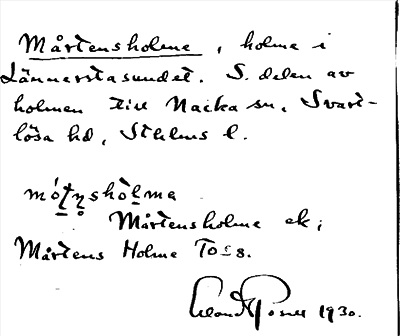 Mårtensholme, holme i
Lännerstasundet. S. delen av
holmen till Nacka sn, Svart-
lösa hd, Sthlms l.
Mårtensholme ek;
Mårtens Holme
1930.